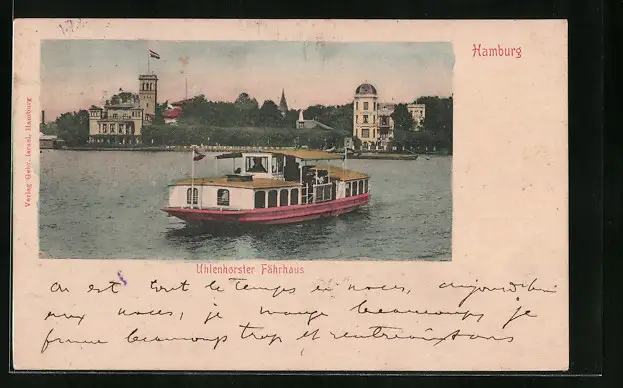 Hamburg
Verlag Gebr. Israel, Hamburg
Uhlenhorster Fährhaus
on est tout le temps en noces, aujourd'hui
aux noces, je mange beaucoup, je
fume beaucoup trop et